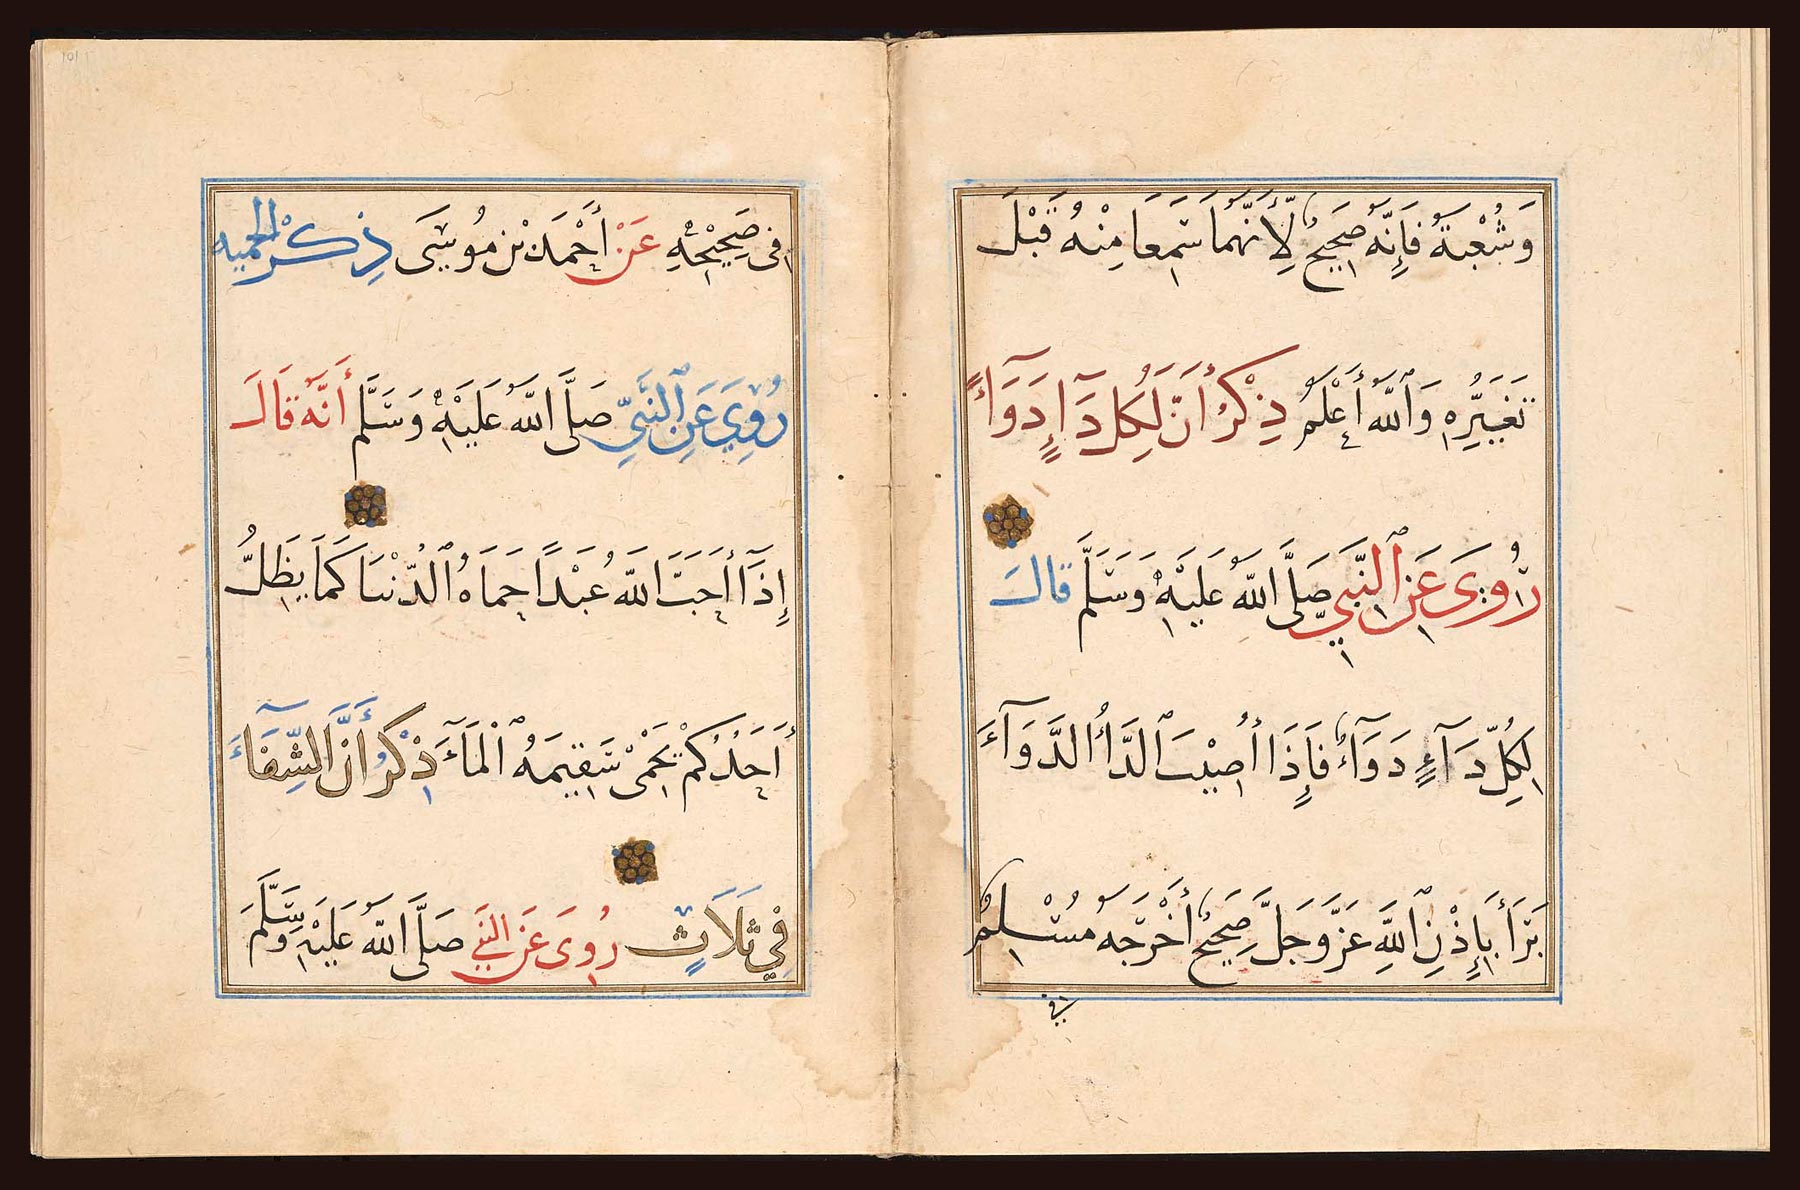 وَشُعْبَةُ فَإِنَّهُ صَحِيحٌ لِأَنَّهُمَا سَمِعَا مِنْهُ قَبْلَ
تَغَيُّرِهِ وَاللَّهُ أَعْلَمُ ذِكْرُ أَنَّ لِكُلِّ دَآءٍ دَوَآءً
رُوِيَ عَنِ النَّبِيِّ صَلَّى اللَّهُ عَلَيْهِ وَسَلَّمَ قَالَ
لِكُلِّ دَآءٍ دَوَآءٌ فَإِذَا أُصِيْبَ الدَّاءُ الدَّوَآءَ
بَرَأَ بِإِذْنِ اللَّهِ عَزَّ وَجَلَّ صَحِيحٌ أَخْرَجَهُ مُسْلِمٌ
في
فى صَحِيْحِهِ عَنْ أَحْمَدَ بْنِ مُوسَى ذِكْرُ الحميه
رُوِيَ عَنِ النَّبِيِّ صَلَّى اللَّهُ عَلَيْهِ وَسَلَّمَ أَنَّهُ قَالَ
إِذَآ أَحَبَّ اللَّهُ عَبْدًا حَمَاهُ الدُّنْيَا كَمَا يَظَلُّ
أَحَدُكُمْ يَحْمِىْ سَقِيمَهُ الْمَآءَ ذِكْرُ أَنَّ الشِّفَآءَ
فِي ثَلَاثٍ رُوِىَ عَنِ النَّبِي صَلَّى اللَّهُ عَلَيْهِ وَسَلَّمَ